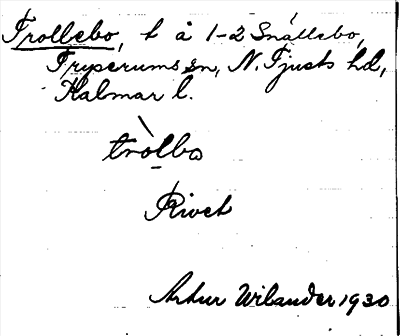 Trollebo, t å 1-2 Snällebo,
Tryserums sn, N. Tjusts hd,
Kalmar l.
tròlbo
Rivet
Artur Wilander 1930